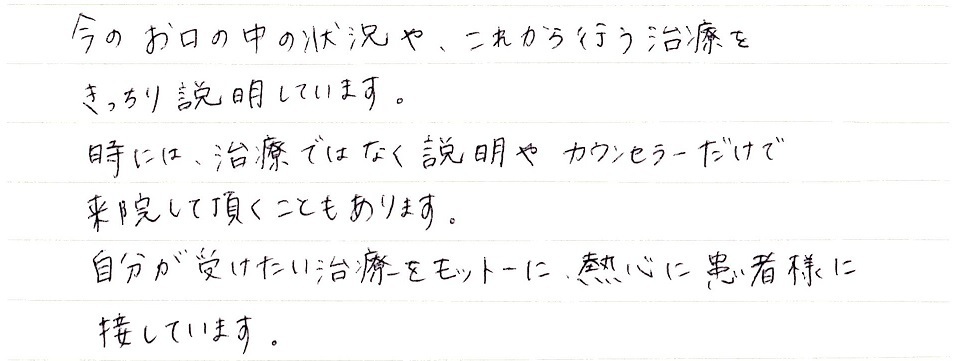 今のお口の中の状況や、これから行う治療を
きっちり説明しています。
時には、治療ではなく説明や カウンセラーだけで
来院して頂くこともあります。
自分が受けたい治療をモットーに、熱心に患者様に
接しています。